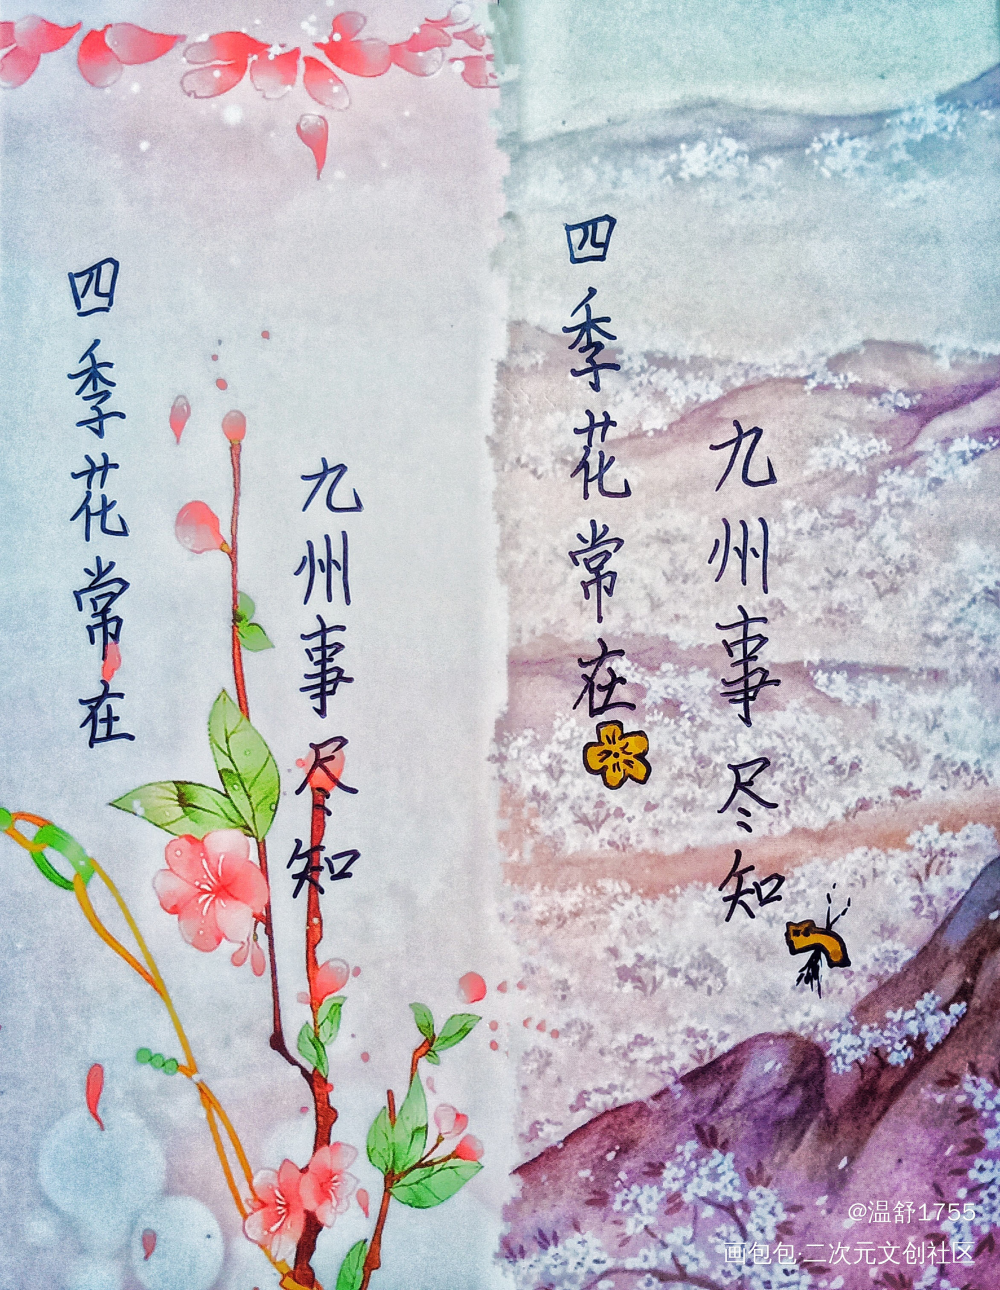 四季花常在
九州事尽知
四季花常在
九州事尽知
@温舒1755
画包包·二次元文创社区